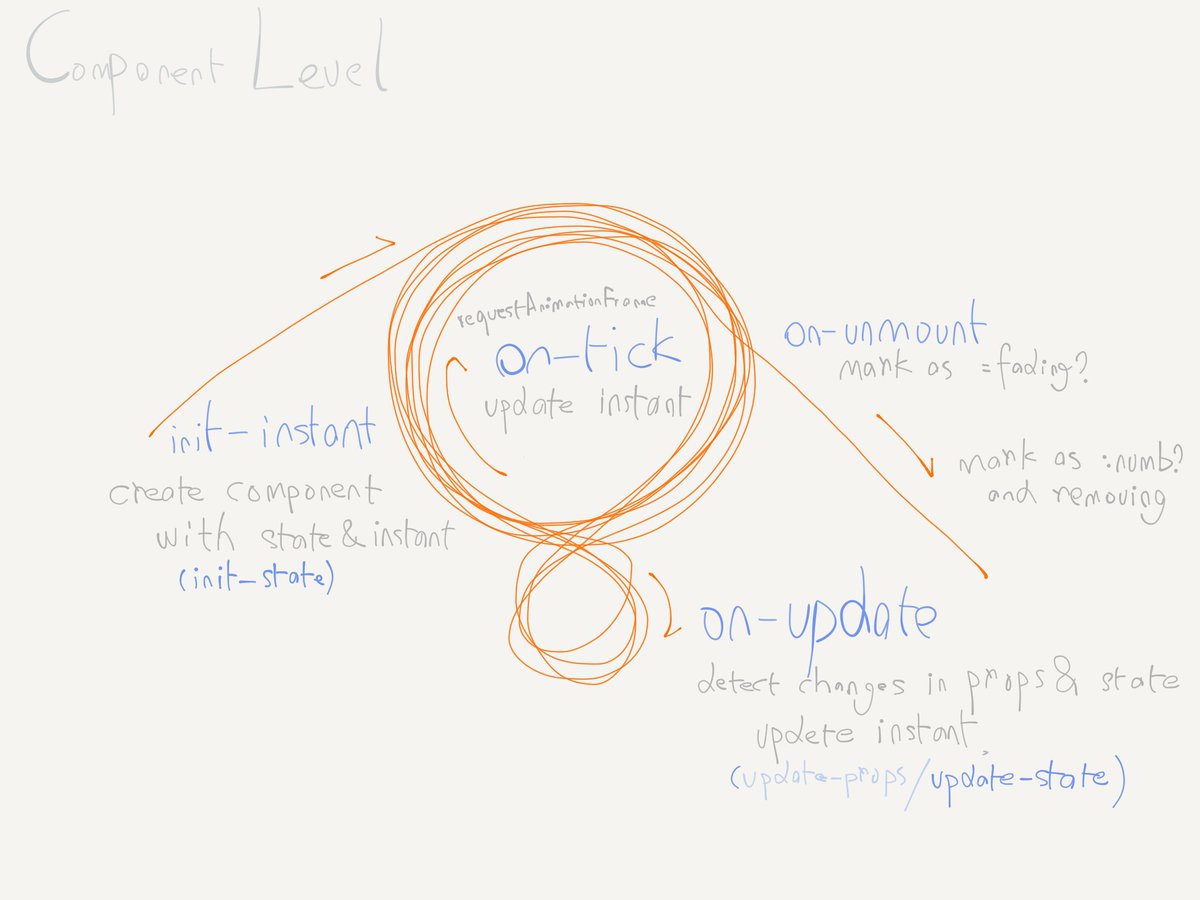 Component Level
requestAnimationFrame
on-tick
update instant
init-instant
create component
with state & instant
(init-state)
on-unmount
mark as =fading?
mark as :numb?
and removing
on-update
detect changes in props & state
updete instant
(update-props/update-state)